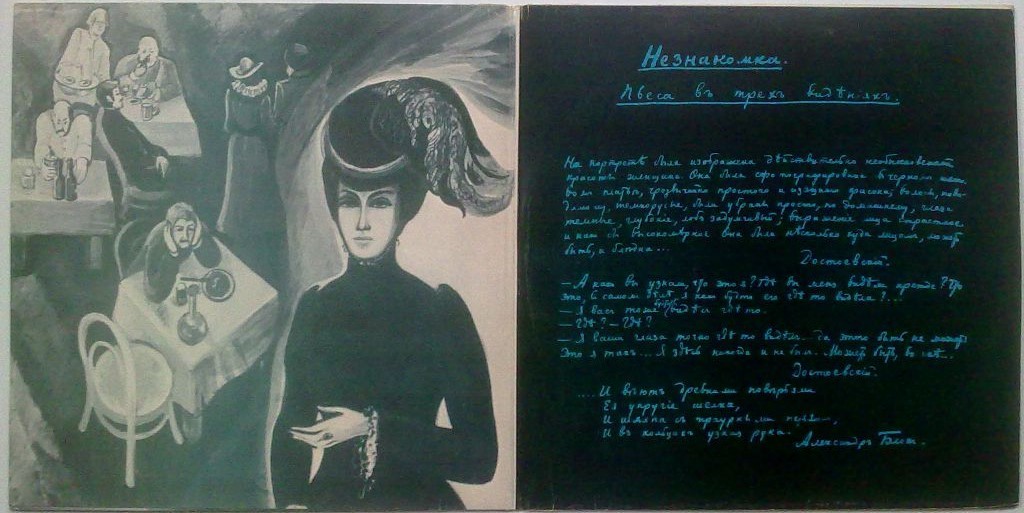 Незнакомка.
Пьеса въ трехъ видѣнiяхъ.
На портретѣ была изображена дѣйствительно необыкновенной
красоты женщина. Она была сфотографирована въ черномъ шелко-
вомъ платьѣ, чрезвычайно простого и изящнаго фасона; волосы, пови-
димому, темнорусые, были убраны просто, по домашнему; глаза
темные, глубокiе, лобъ задумчивый; выраженiе лица страстное
и какъ бы высокомѣрное. Она была нѣсколько худа лицомъ, можетъ
быть, и блѣдна...
Достоевскiй.
— А какъ вы узнали, что это я? Гдѣ вы меня видѣли прежде? Что
это, въ самомъ дѣлѣ, я какъ будто его гдѣ то видѣла?...
— Я васъ тоже будто видѣлъ гдѣ то.
— Гдѣ? — Гдѣ?
— Я ваши глаза точно гдѣ то видѣлъ... да этого быть не можетъ
Это я такъ... Я здѣсь никогда и не былъ. Можетъ быть, во снѣ...
Достоевскiй.
....И вѣютъ древними повѣрьями
Ея упругiе шелка,
И шляпа съ траурными перьями,
И въ кольцахъ узкая рука.
Александръ Блокъ.